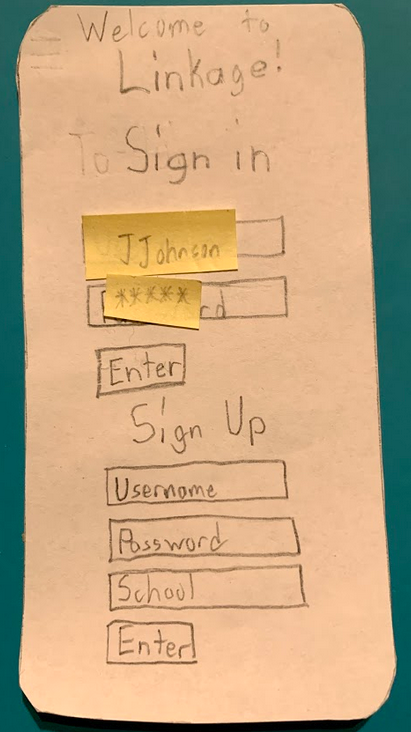 Welcome to
Linkage!
To Sign in
JJohnson
*****
rd
Enter
Sign Up
Username
Password
School
Enter